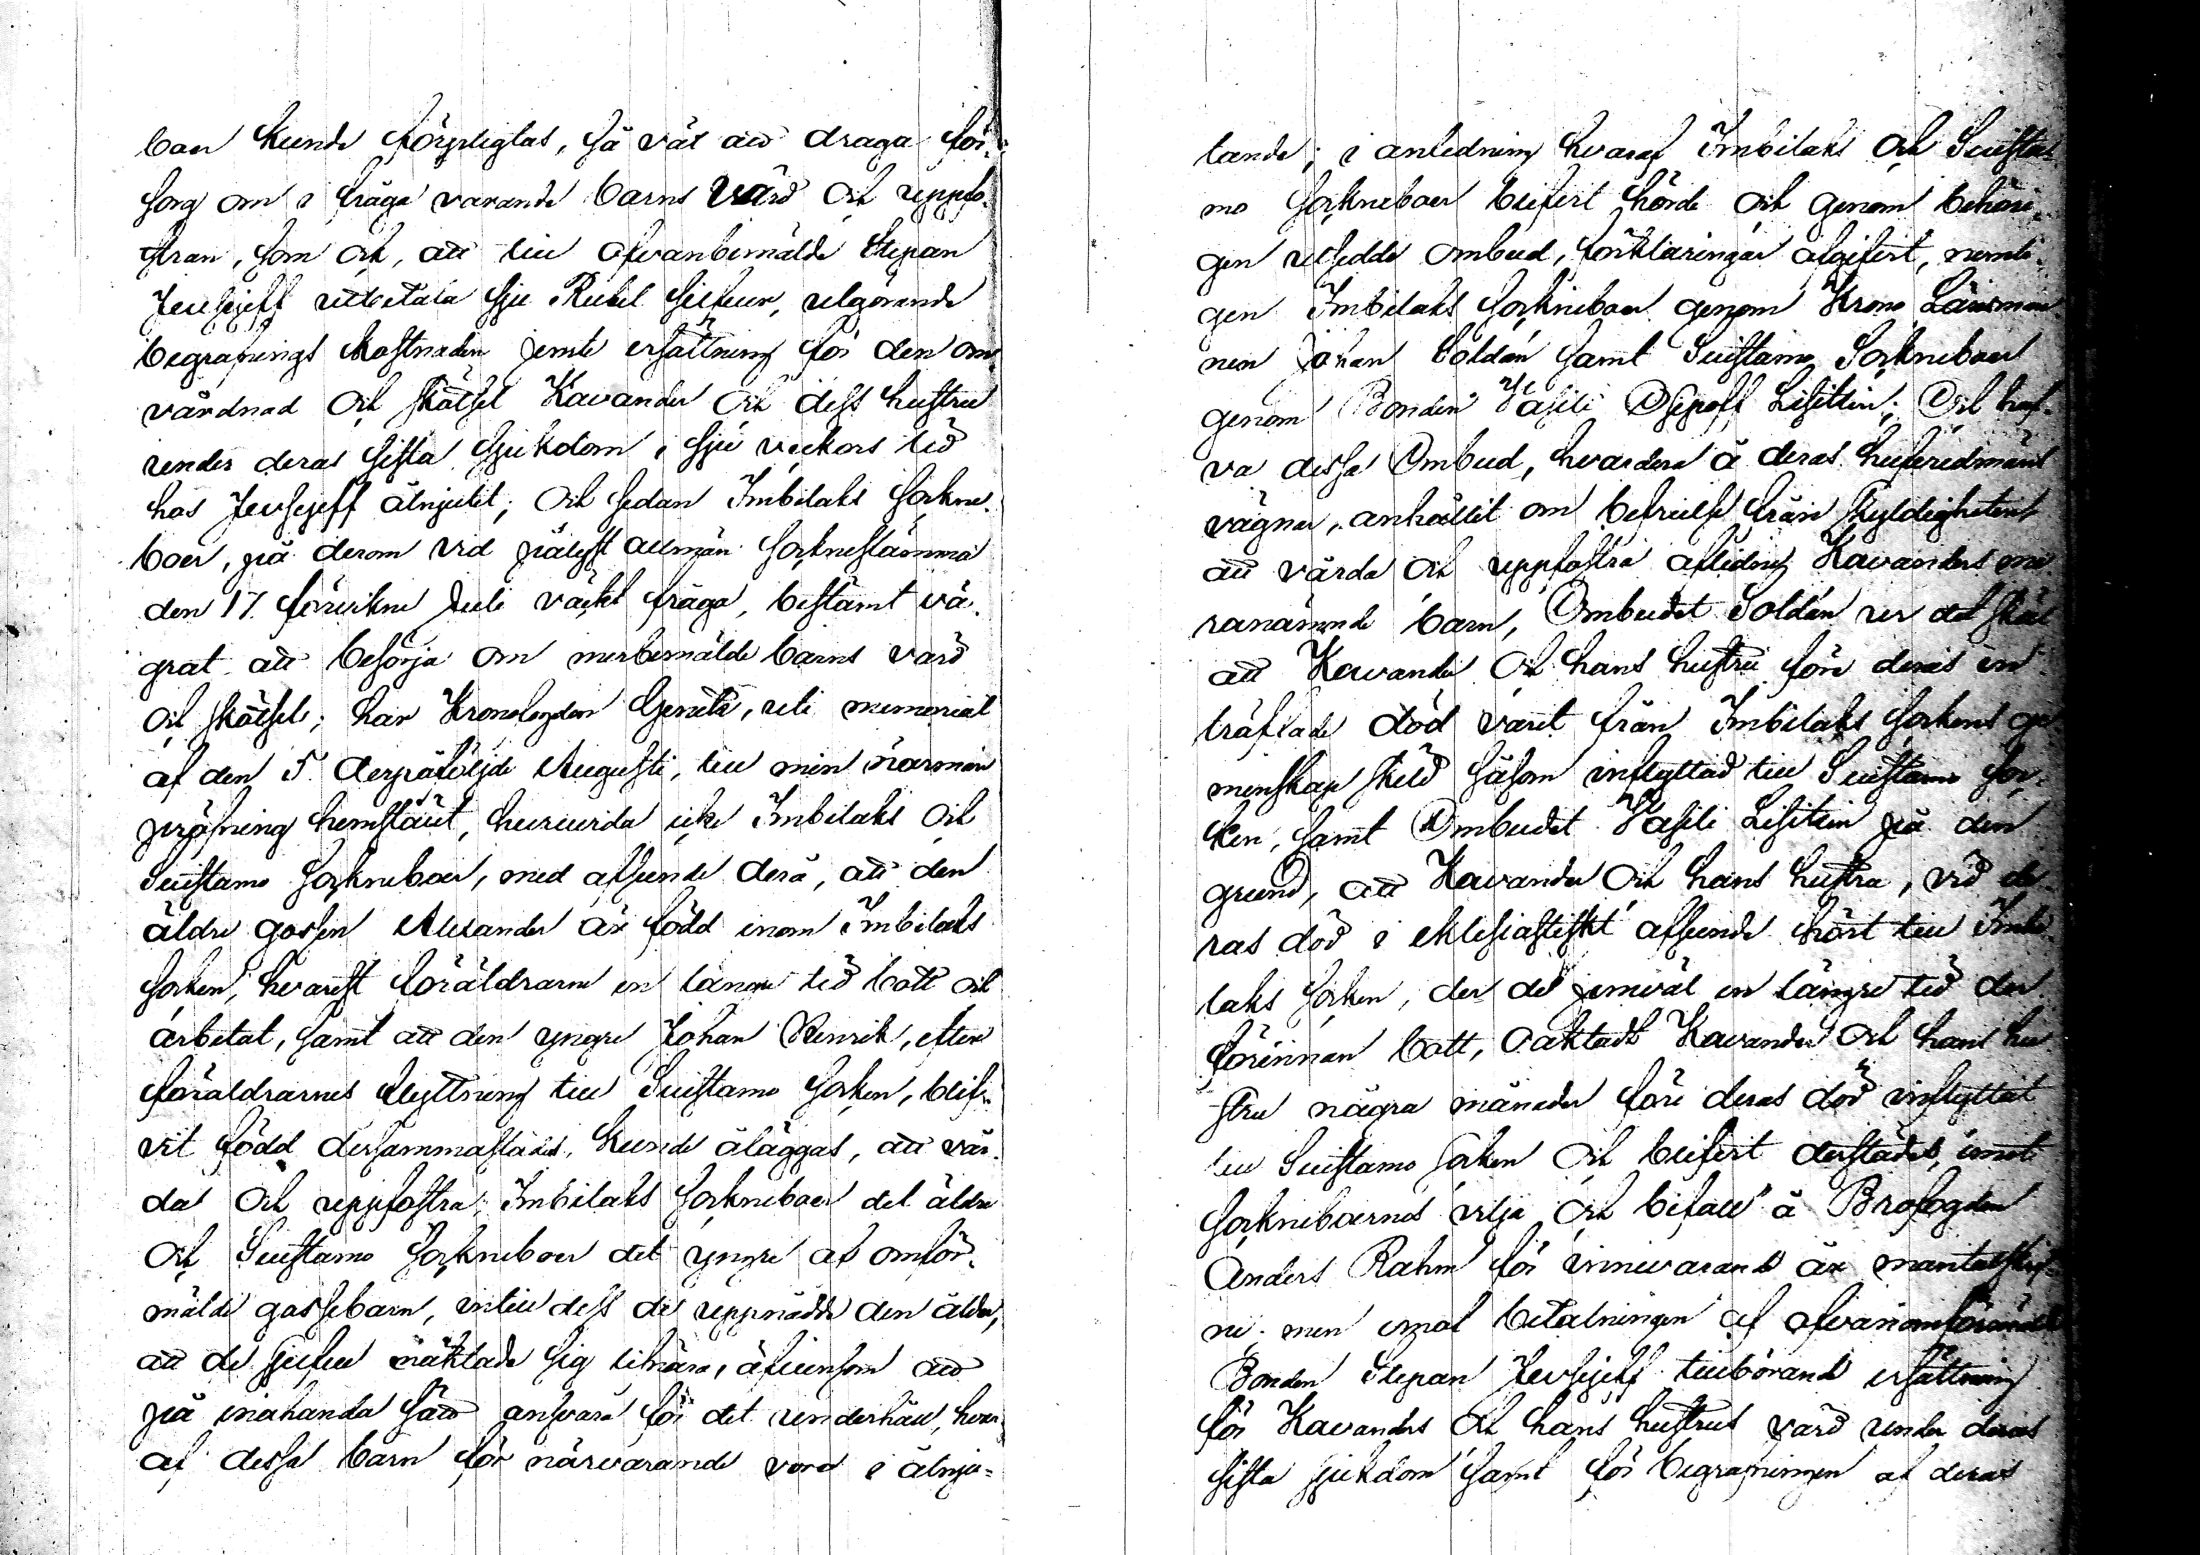 boer kunde förpligtas, så väl att draga för-
sorg om i fråga varande barns vård och uppfo-
stran, som ock, att till ofvanbemälde Stepan
Jevsejeff utbetala sju Rubel silfver, utgörande
begrafnings kostnaden jemte ersättning för den om-
vårdnad och skötsel Kavander och dess hustru
under deras sista sjukdom i sju veckors tid
hos Jevsejeff åtnjutit; och sedan Imbilaks sockne-
boer, på derom vid pålyst allmän socknestämma
den 17 förvikne Juli väckt fråga, bestämt vä-
grat att besörja om merbemälde barns vård
och skötsel; har Kronofogden Genetz, uti memorial
af den 5 derpåföljde Augusti, till min närmare
pröfning hemstält, huruvida icke Imbilaks och
Suistamo sockneboer, med afseende derå, att den
äldre gossen Alexander är född inom Imbilaks
socken, hvarest föräldrarne en längre tid bott och
arbetat, samt att den yngre Johan Henrik, efter
föräldrarnes flyttning till Suistamo socken, blif-
vit född dersammastädes, kunde åläggas, att vår-
da och uppfostra Imbilaks sockneboer det äldre
och Suistamo sockneboer det yngre af omför-
mälde gossebarn, intill dess de uppnådde den ålder,
att de sjelfve mäktade sig lifnära, äfvensom att
på enahanda sätt ansvara för det underhåll, hvar-
af dessa barn för närvarande vore i åtnju-
tande; i anledning hvaraf Imbilaks och Suista-
mo sockneboer blifvit hörde och genom behöri-
gen utsedde ombud, förklaringar afgifvit, nemli-
gen Imbilaks sockneboer genom Krono Länsman-
nen Johan Soldán samt Suistamo Sockneboer
genom Bonden Vasili Osipoff Lisitsin; Och haf-
va dessa Ombud, hvardera å deras hufvudmäns
vägnar, anhållit om befrielse från skyldigheten
att vårda och uppfostra aflidne Kavanders me-
ranämnde barn, Ombudet Soldán ur det skäl
att Kavander och hans hustru före deras in-
träffade död varit från Imbilaks sockens ge-
menskap skild såsom inflyttad till Suistamo soc-
ken, samt Ombudet Vasili Lisitsin på den
grund, att Kavander och hans hustru, vid de-
ras död i eklesiastiskt afseende hört till Imbi-
laks socken, der de jemväl en längre tid der-
förinnan bott, oaktadt Kavander och hans hu-
stru några månader före deras död inflyttat
till Suistamo socken och blifvit derstädes, emot
sockneboernes vilja och bifall å Brofogden
Anders Rahm för innevarande år mantalskrif-
ne. men emot betalningen af ofvanomförmälde
Bonden Stepan Jevsejeff tillkommande ersättning
för Kavanders och hans hustrus vård under deras
sista sjukdom samt för begrafningen af deras